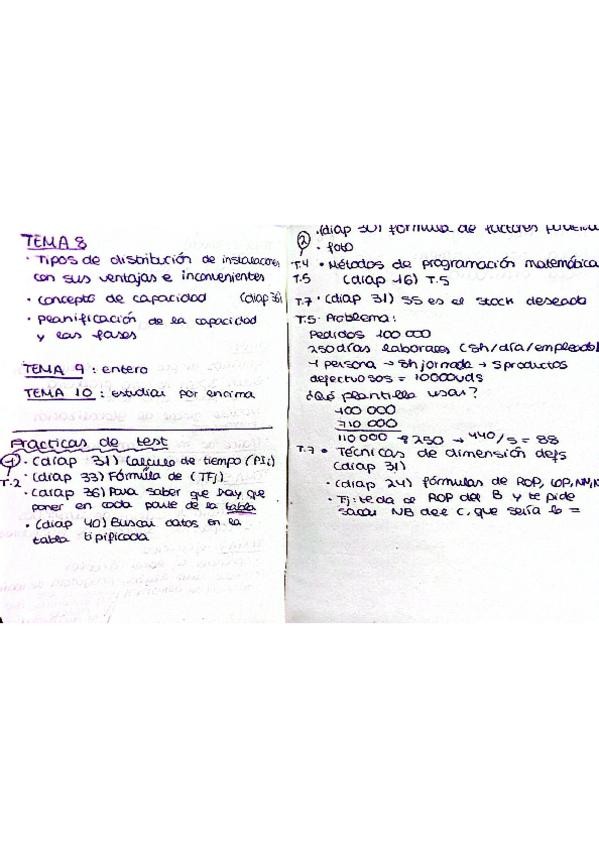 TEMA 8
· Tipos de distribución de instalaciones
con sus ventajas e inconvenientes
· concepto de capacidad (diap 36)
· planificación de la capacidad
y las fases
TEMA 9 : entero
TEMA 10 : estudiar por encima
Practicas de test
1 · (diap 31) Calculo de tiempo (PIi)
T.2 · (diap 33) Fórmula de (TFj)
· (diap 36) Para saber que Day que
poner en cada parte de la tabla
· (diap 40) Buscar datos en la
tabla tipificada
· (diap 30) fórmula de factores
2 · foto
T.4 · Métodos de programación matemática
T.5 (diap 16) T.5
T.7 · (diap 31) SS es el stock deseado
T.5 · Problema:
Pedidos 100 000
250 días laborales (8h/día/empleado)
1 persona → 8h jornada → 5 productos
defectuosos = 10000uds
¿Qué plantilla usar?
100 000
+10 000
110 000 ÷ 250 → 440/5 = 88
T.7 · Técnicas de dimensión defs
(diap 31)
· (diap 24) fórmulas de ROP, LOP, NM, N
· Tj: te da el ROP del B y te pide
sacar NB del C, que sería lo =